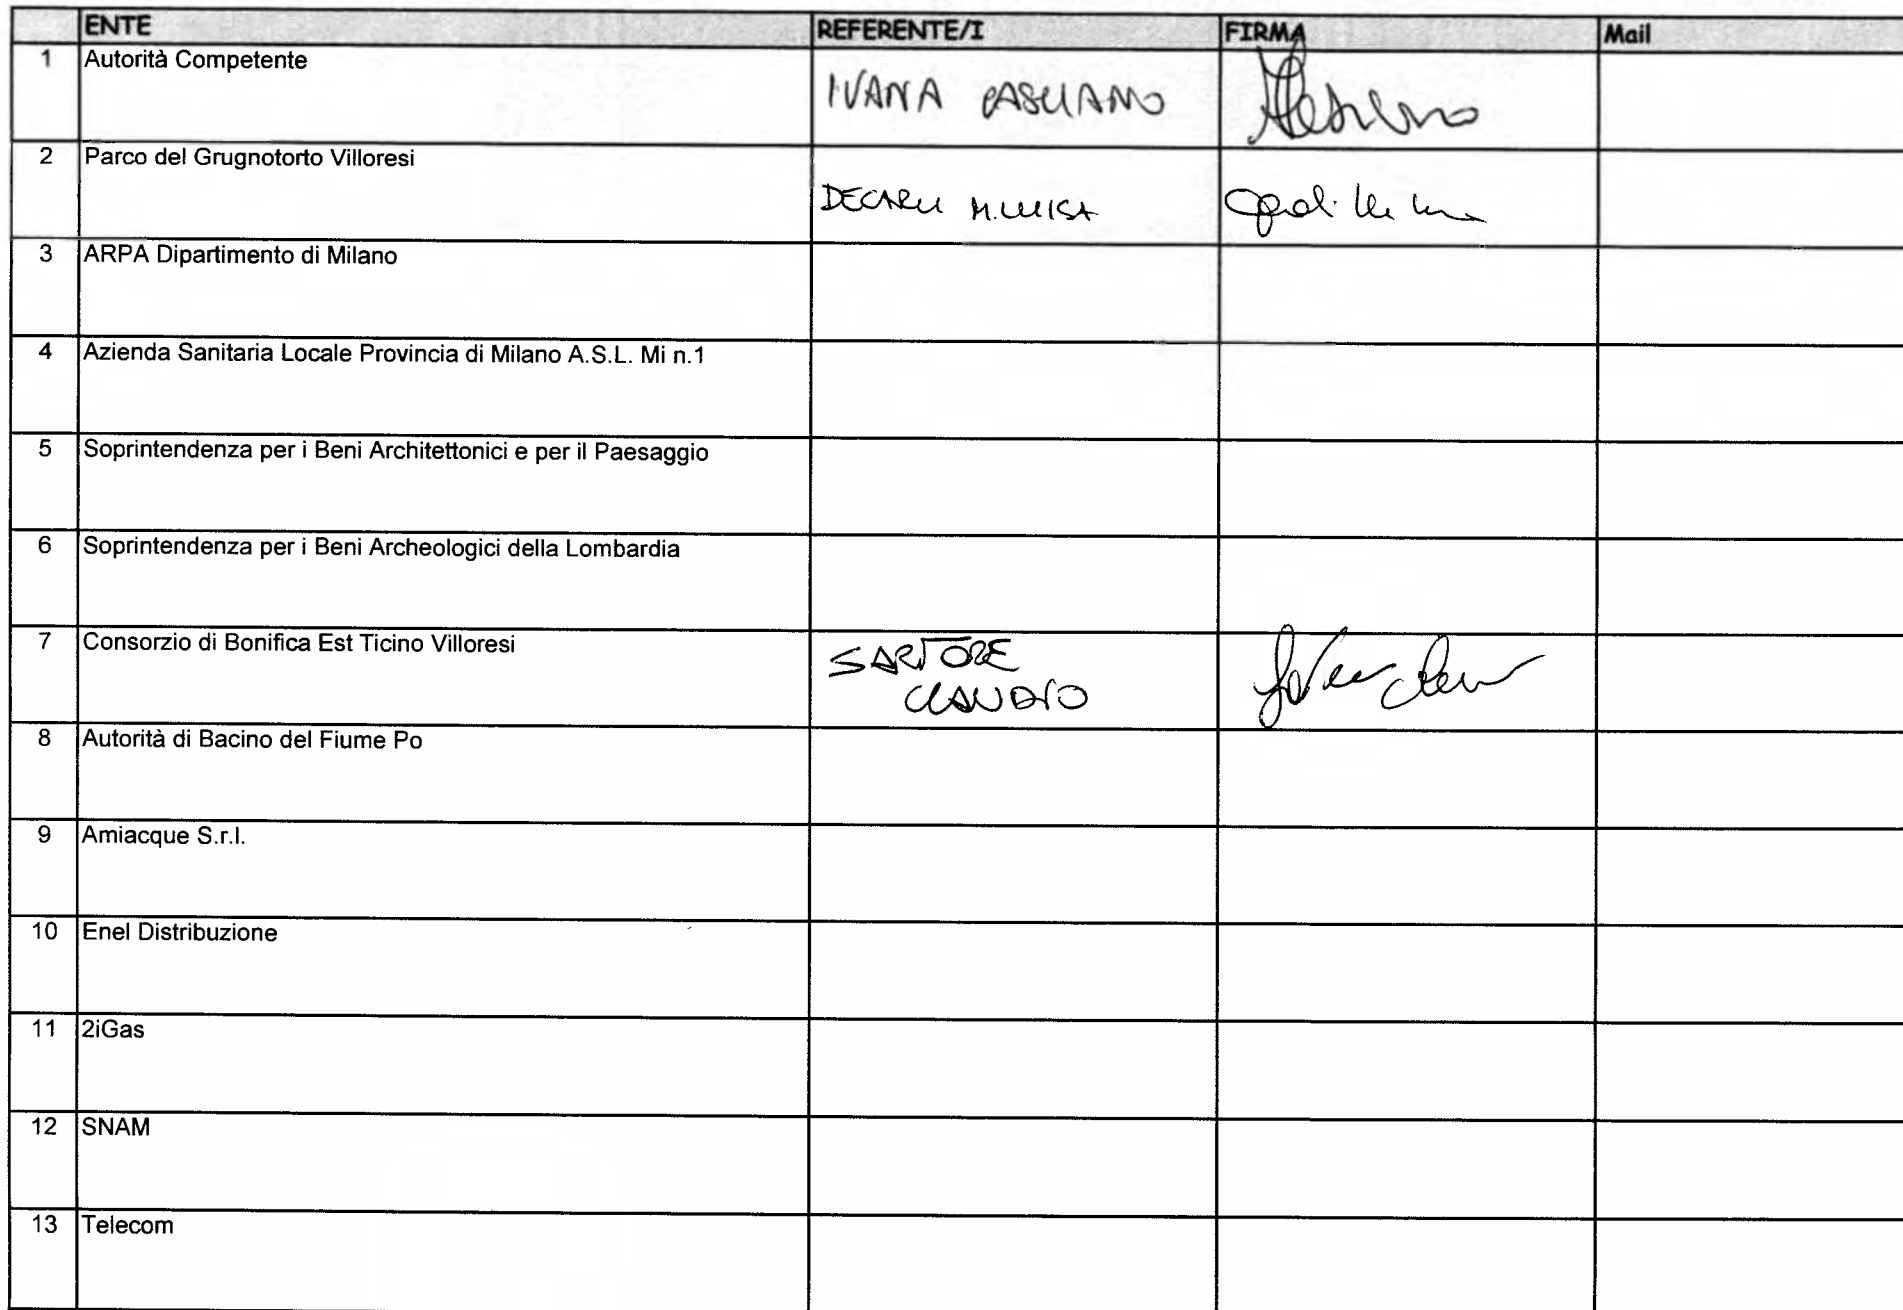 ENTE REFERENTE/I FIRMA Mail
1 Autorità Competente
IVANA
2 Parco del Grugnotorto Villoresi
DECARLI M.LUISA
3 ARPA Dipartimento di Milano
4 Azienda Sanitaria Locale Provincia di Milano A.S.L. Mi n.1
5 Soprintendenza per i Beni Architettonici e per il Paesaggio
6 Soprintendenza per i Beni Archeologici della Lombardia
7 Consorzio di Bonifica Est Ticino Villoresi
SARTORE
CLAUDIO
8 Autorità di Bacino del Fiume Po
9 Amiacque S.r.l.
10 Enel Distribuzione
11 2iGas
12 SNAM
13 Telecom